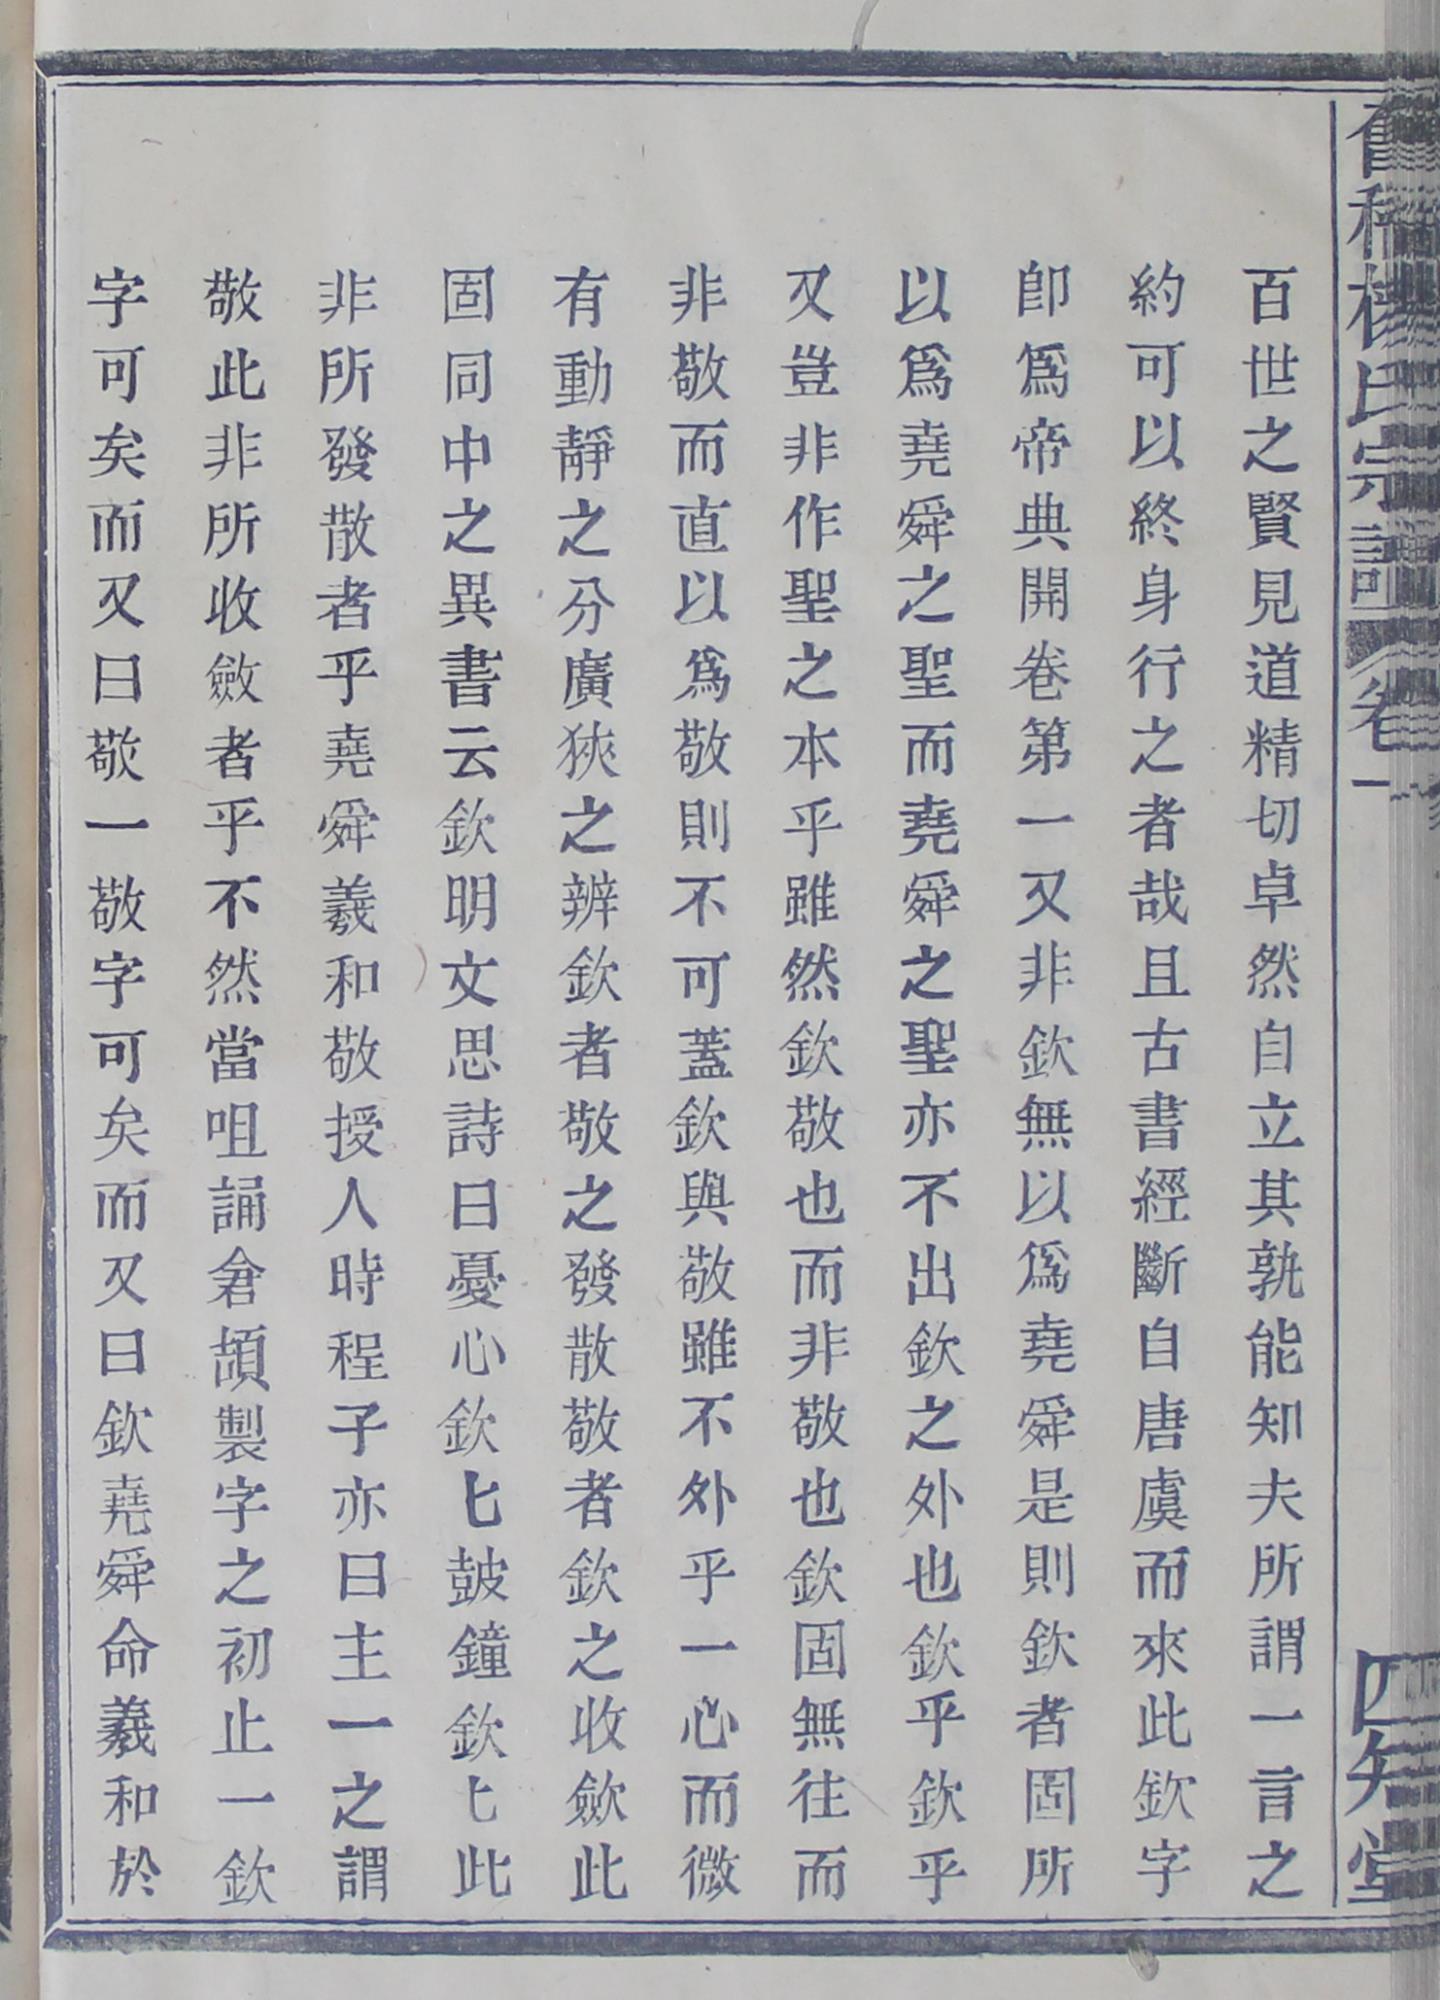 舊稱楊氏宗譜 卷一 四知堂
百世之賢見道精切卓然自立其孰能知夫所謂一言之
約可以終身行之者哉且古書經斷自唐虞而來此欽字
卽爲帝典開卷第一又非欽無以爲堯舜是則欽者固所
以爲堯舜之聖而堯舜之聖亦不出欽之外也欽乎欽乎
又豈非作聖之本乎雖然欽敬也而非敬也欽固無往而
非敬而直以爲敬則不可蓋欽與敬雖不外乎一心而微
有動靜之分廣狹之辨欽者敬之發散敬者欽之收歛此
固同中之異書云欽明文思詩曰憂心欽匕鼓鐘欽匕此
非所發散者乎堯舜羲和敬授人時程子亦曰主一之謂
敬此非所收斂者乎不然當咀誦倉頡製字之初止一欽
字可矣而又曰敬一敬字可矣而又曰欽堯舜命羲和於